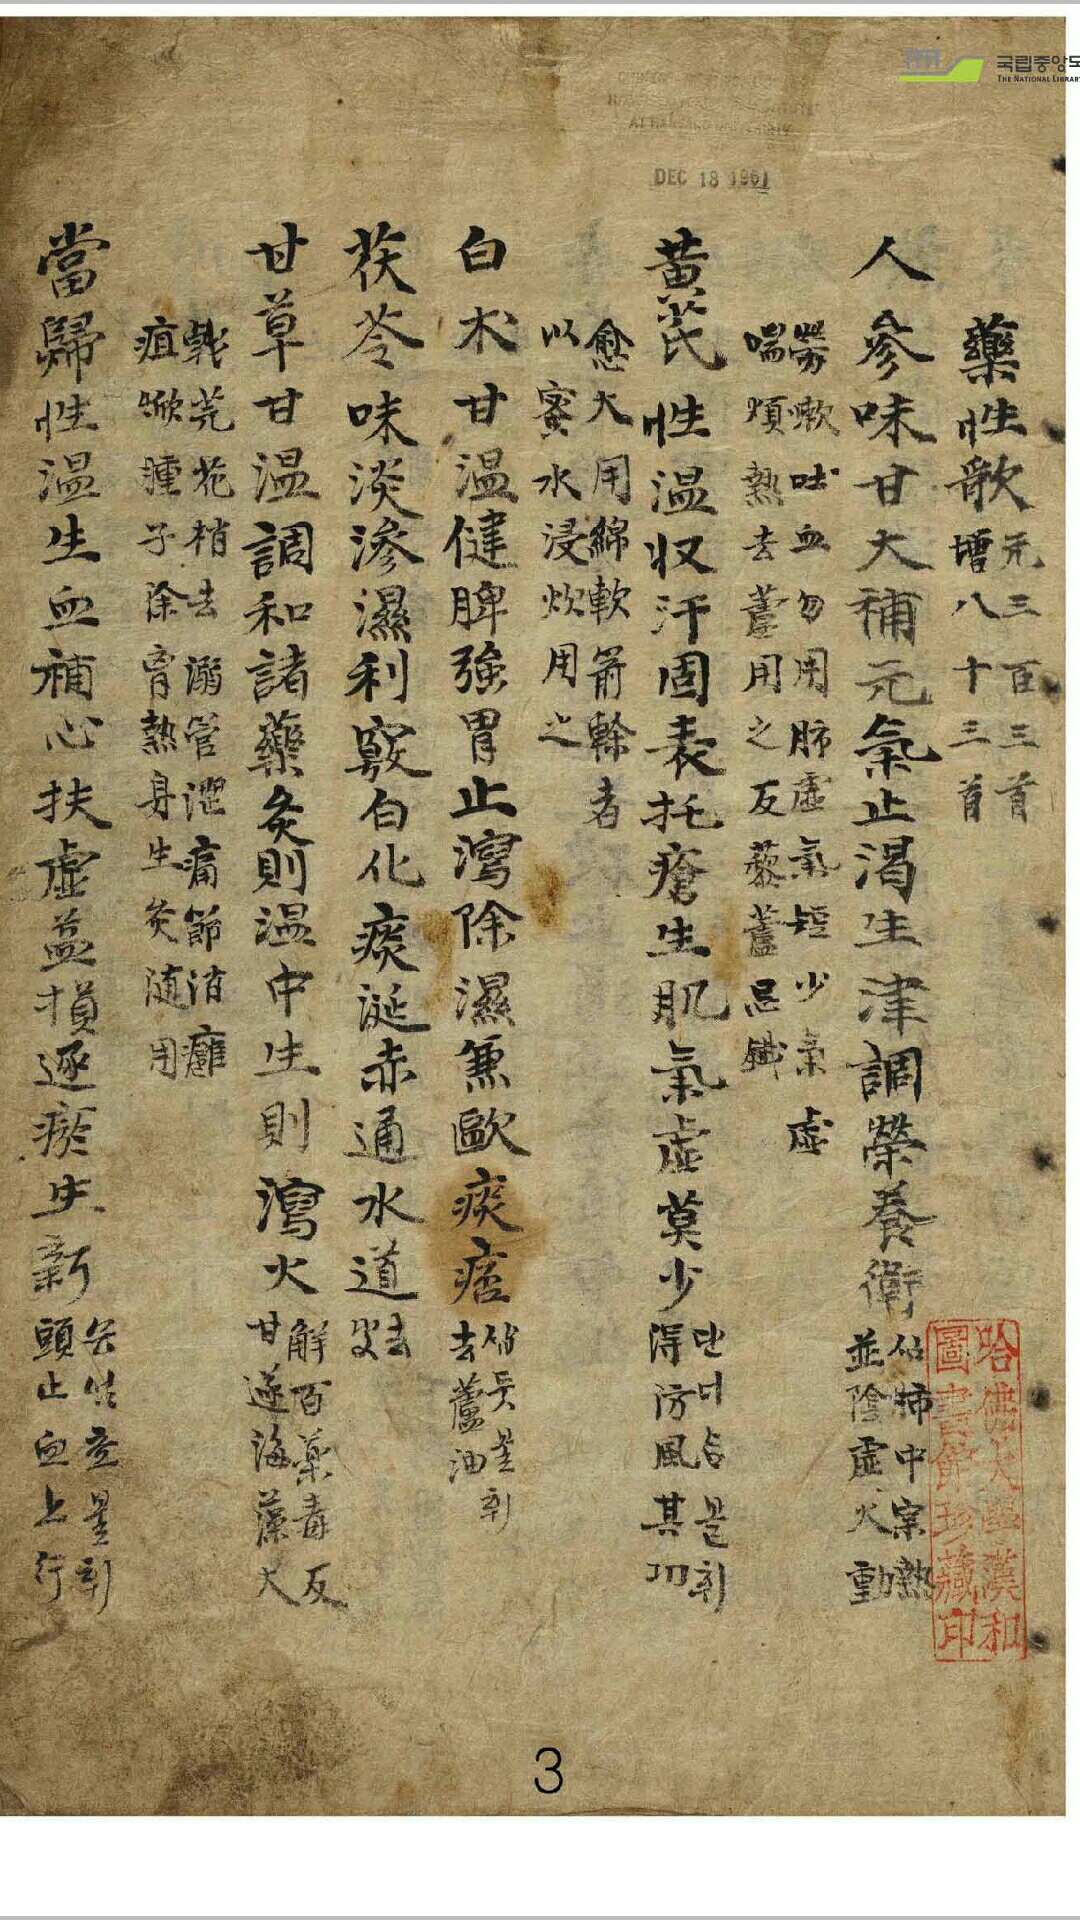 藥性歌 元三百三首
增八十三首
人參味甘大補元氣止渴生津調榮養衛 肺中宗熱
並陰虛火動
勞嗽吐血勿用肺虛氣短少氣虛
喘煩熱去蘆用之反藜蘆忌鐵
黃芪性溫収汗固表托瘡生肌氣虛莫少 단너삼불휘
得防風其功
愈大用綿軟箭幹者
以蜜水浸炊用之
白朮甘溫健脾強胃止瀉除濕兼歐痰痞 삽듯불휘
去蘆油
茯苓味淡滲濕利竅白化痰涎赤通水道 去
皮
甘草甘溫調和諸藥炙則溫中生則瀉火 解百藥毒反
甘遂海藻大
戟芫花梢去溺管澀痛節消癰
疽焮腫子除胷熱身生炙随用
當歸性溫生血補心扶虛益損逐瘀生新 불휘
頭止血上行
哈佛大學漢和
圖書館珍藏印
DEC 18 1961
국립중앙도
THE NATIONAL LIBRARY
3